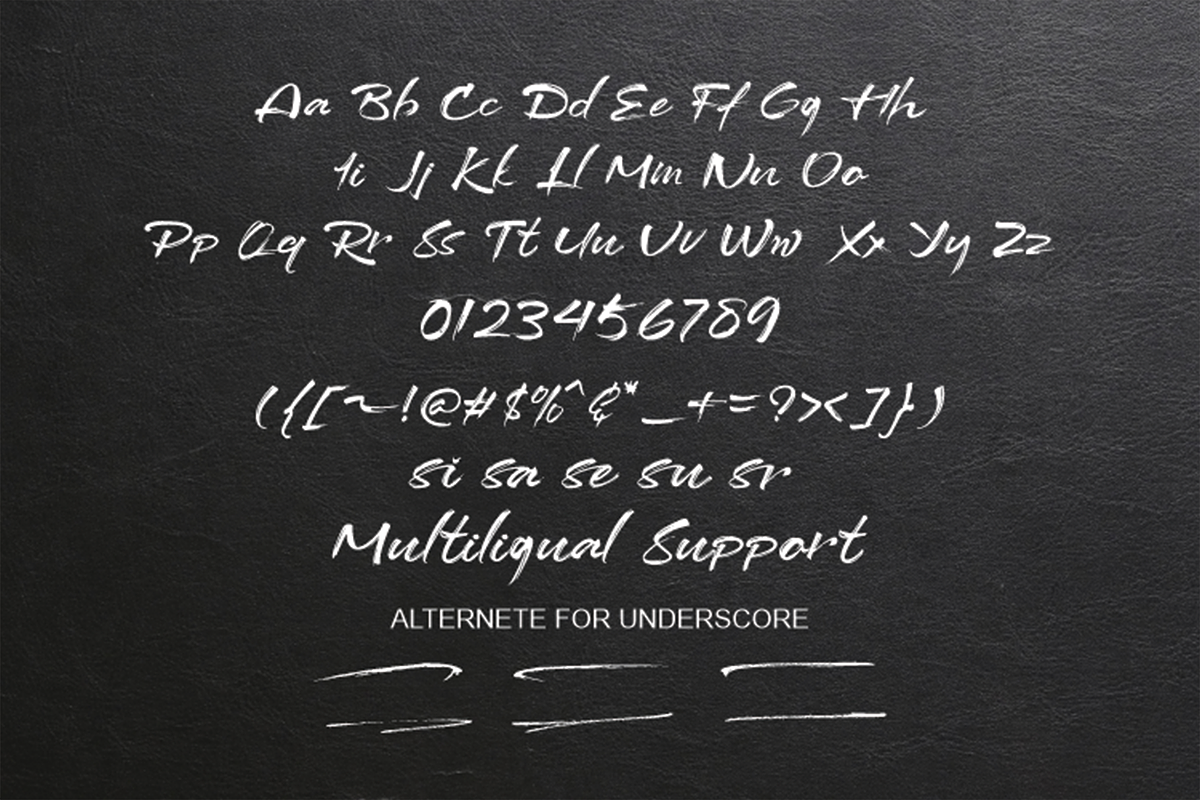 Aa Bb Cc Dd Ee Ff Gg Hh
Ii Jj Kk Ll Mm Nn Oo
Pp Qq Rr Ss Tt Uu Vv Ww Xx Yy Zz
0123456789
({[~!@#$%^&*_+=?><]})
si sa se su sr
Multiligual Support
ALTERNETE FOR UNDERSCORE